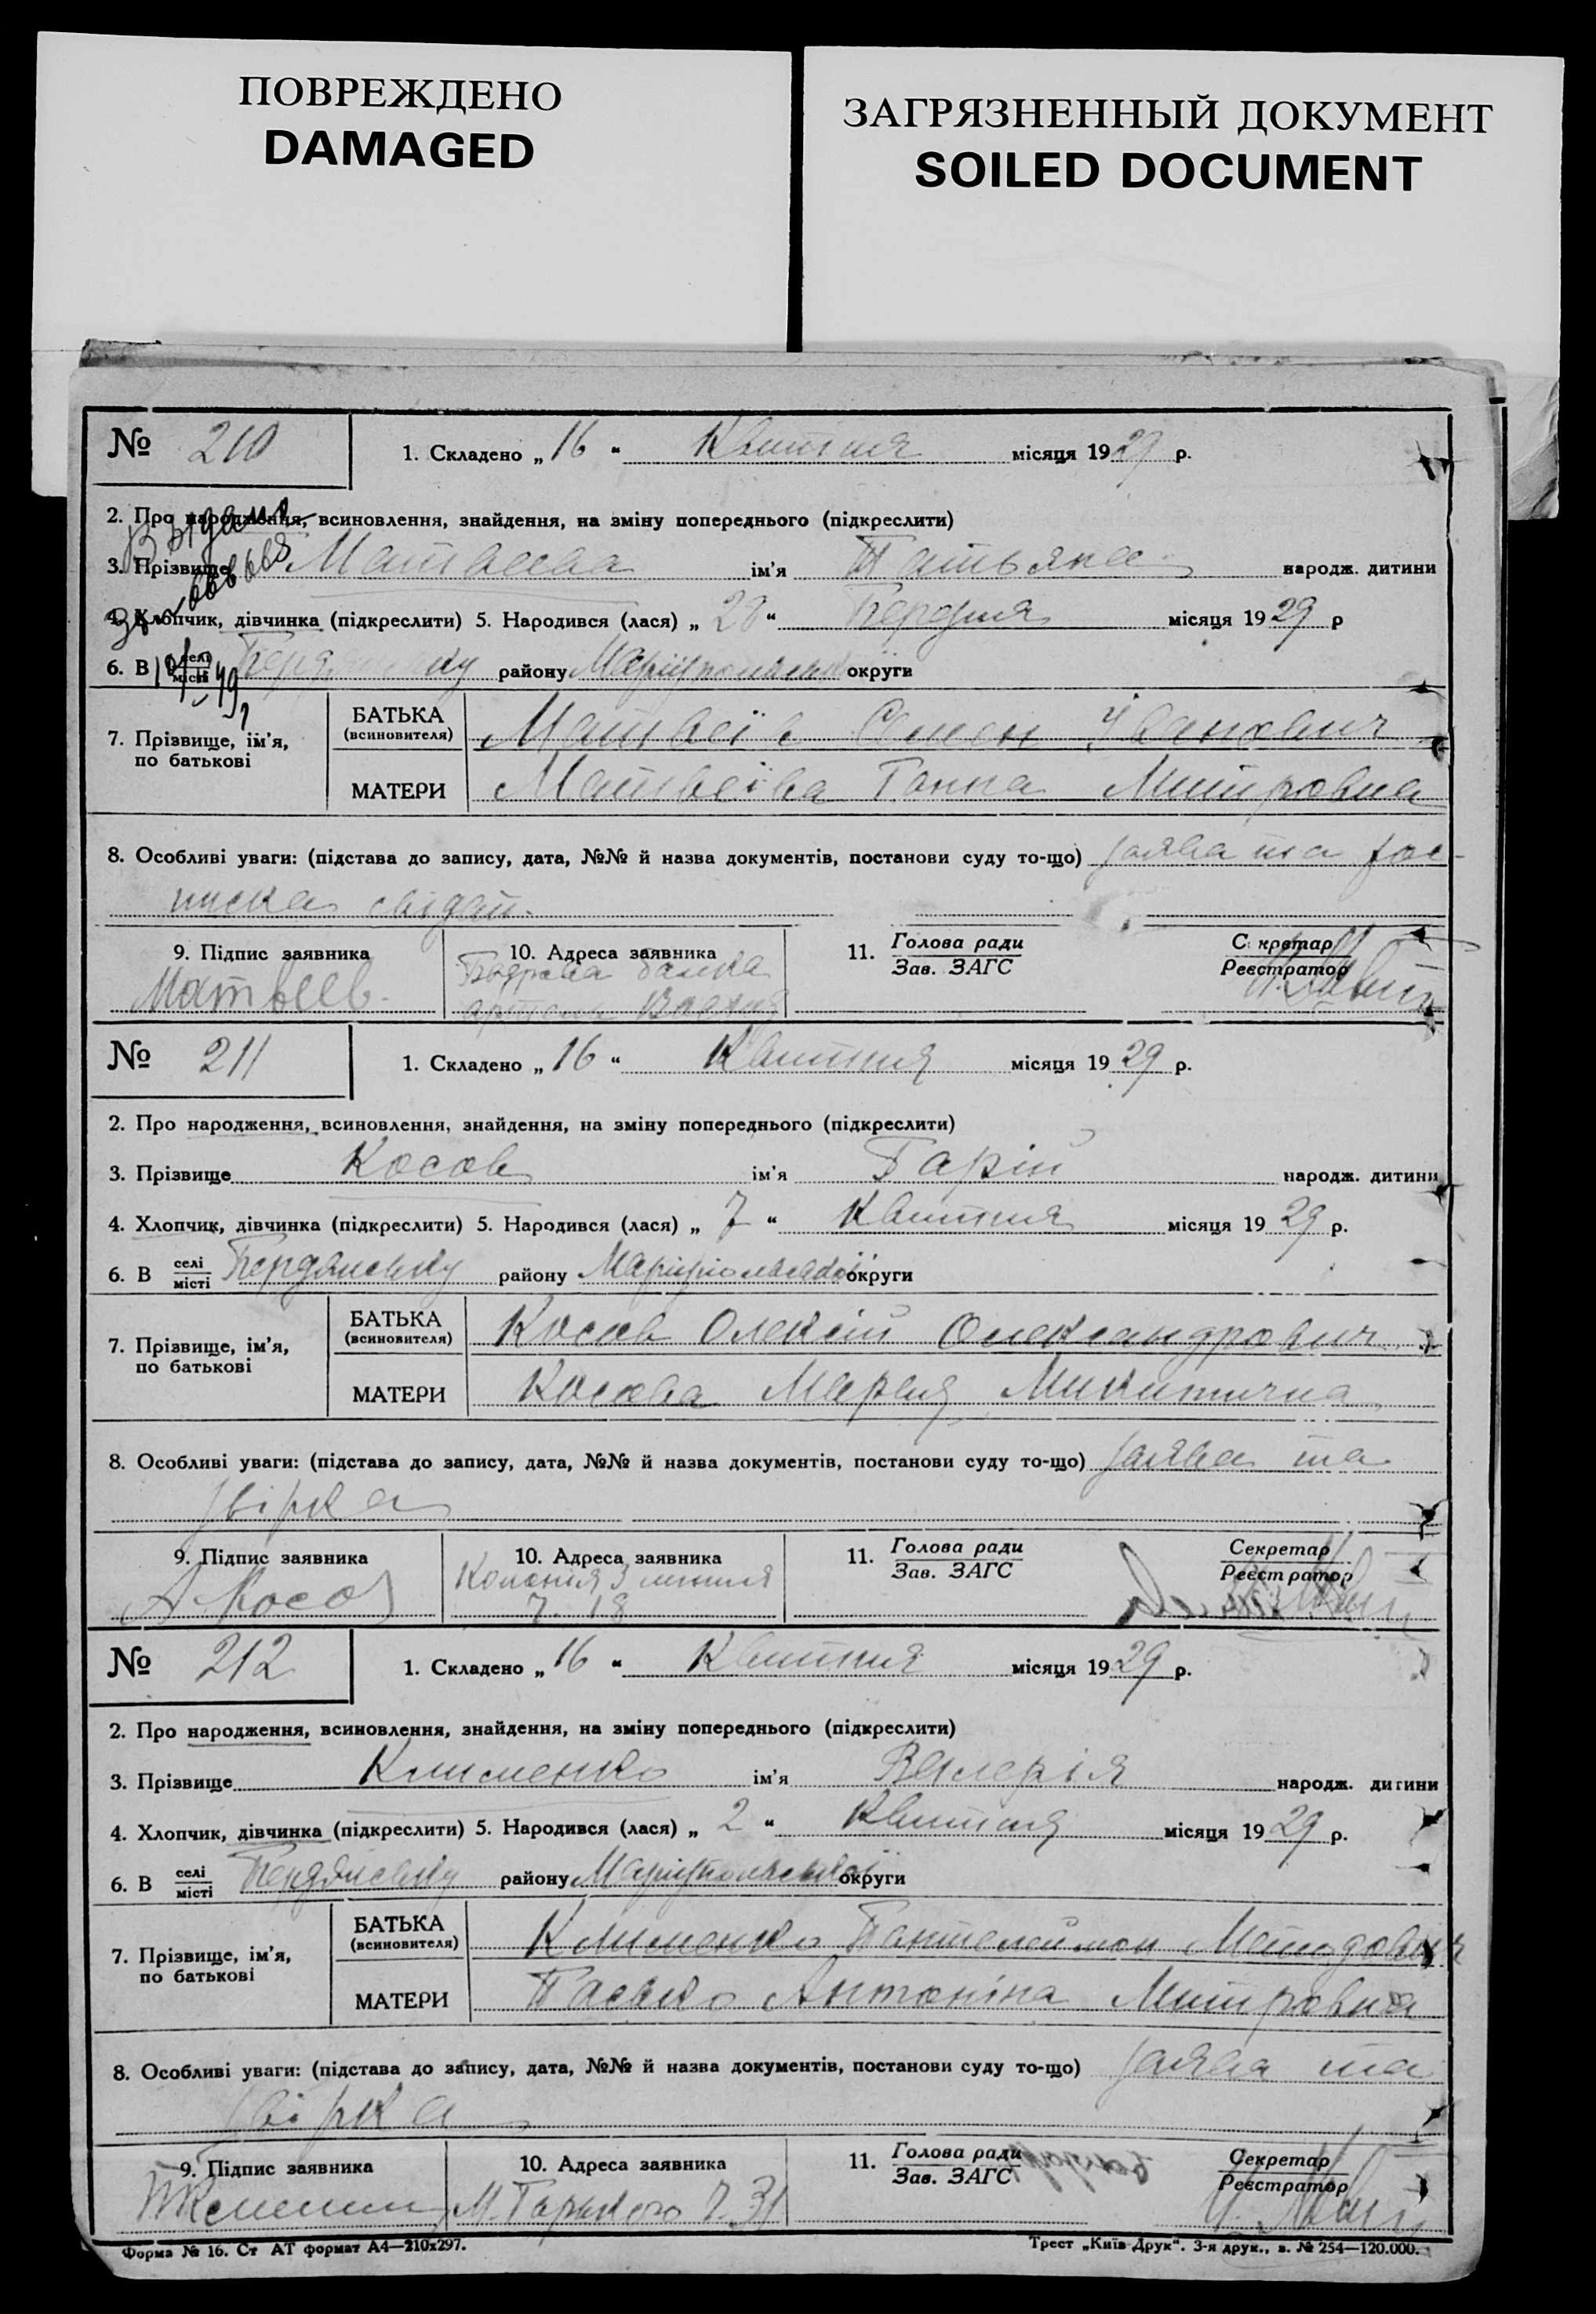 ПОВРЕЖДЕНО
DAMAGED
ЗАГРЯЗНЕННЫЙ ДОКУМЕНТ
SOILED DOCUMENT
№ 210
1. Складено „ 16 “ Квитня місяця 1929 р.
2. Про народження, всиновлення, знайдення, на зміну попереднього (підкреслити)
3. Прізвище Матвеева ім'я Татьяна народж. дитини
4. Хлопчик, дівчинка (підкреслити) 5. Народився (лася) „ 28 “ Березня місяця 1929 р
6. В селі місті Бердянську району Маріупольської округи
7. Прізвище, ім'я, по батькові
БАТЬКА (всиновителя) Матвеїв Семен Іванович
МАТЕРИ Матвеїва Ганна Митровна
8. Особливі уваги: (підстава до запису, дата, №№ й назва документів, постанови суду то-що) заява та рос-
писка свідат.
9. Підпис заявника
Матвеев
10. Адреса заявника
балка
артель
11. Голова ради
Зав. ЗАГС
Секретар
Реєстратор
№ 211
1. Складено „ 16 “ Квитня місяця 1929 р.
2. Про народження, всиновлення, знайдення, на зміну попереднього (підкреслити)
3. Прізвище Косов ім'я Гарій народж. дитини
4. Хлопчик, дівчинка (підкреслити) 5. Народився (лася) „ 7 “ Квитня місяця 1929 р.
6. В селі місті Бердянську району Маріупольської округи
7. Прізвище, ім'я, по батькові
БАТЬКА (всиновителя) Косов Олексій Олександрович
МАТЕРИ Косова Мария Микитична
8. Особливі уваги: (підстава до запису, дата, №№ й назва документів, постанови суду то-що) заява та
звірка
9. Підпис заявника
А. Косов
10. Адреса заявника
Колонія 3 линия
ч. 18
11. Голова ради
Зав. ЗАГС
Секретар
Реєстратор
№ 212
1. Складено „ 16 “ Квитня місяця 1929 р.
2. Про народження, всиновлення, знайдення, на зміну попереднього (підкреслити)
3. Прізвище Клименко ім'я Валерія народж. дитини
4. Хлопчик, дівчинка (підкреслити) 5. Народився (лася) „ 2 “ Квитня місяця 1929 р.
6. В селі місті Бердянську району Маріупольської округи
7. Прізвище, ім'я, по батькові
БАТЬКА (всиновителя) Клименко Пантелеймон
МАТЕРИ Антоніна Митровна
8. Особливі уваги: (підстава до запису, дата, №№ й назва документів, постанови суду то-що) заява та
звірка
9. Підпис заявника
10. Адреса заявника
М. Горького ч. 31
11. Голова ради
Зав. ЗАГС
Секретар
Реєстратор
Форма № 16. Ст АТ формат А4—210x297.
Трест „Київ-Друк“. 3-я друк., з. № 254—120.000.